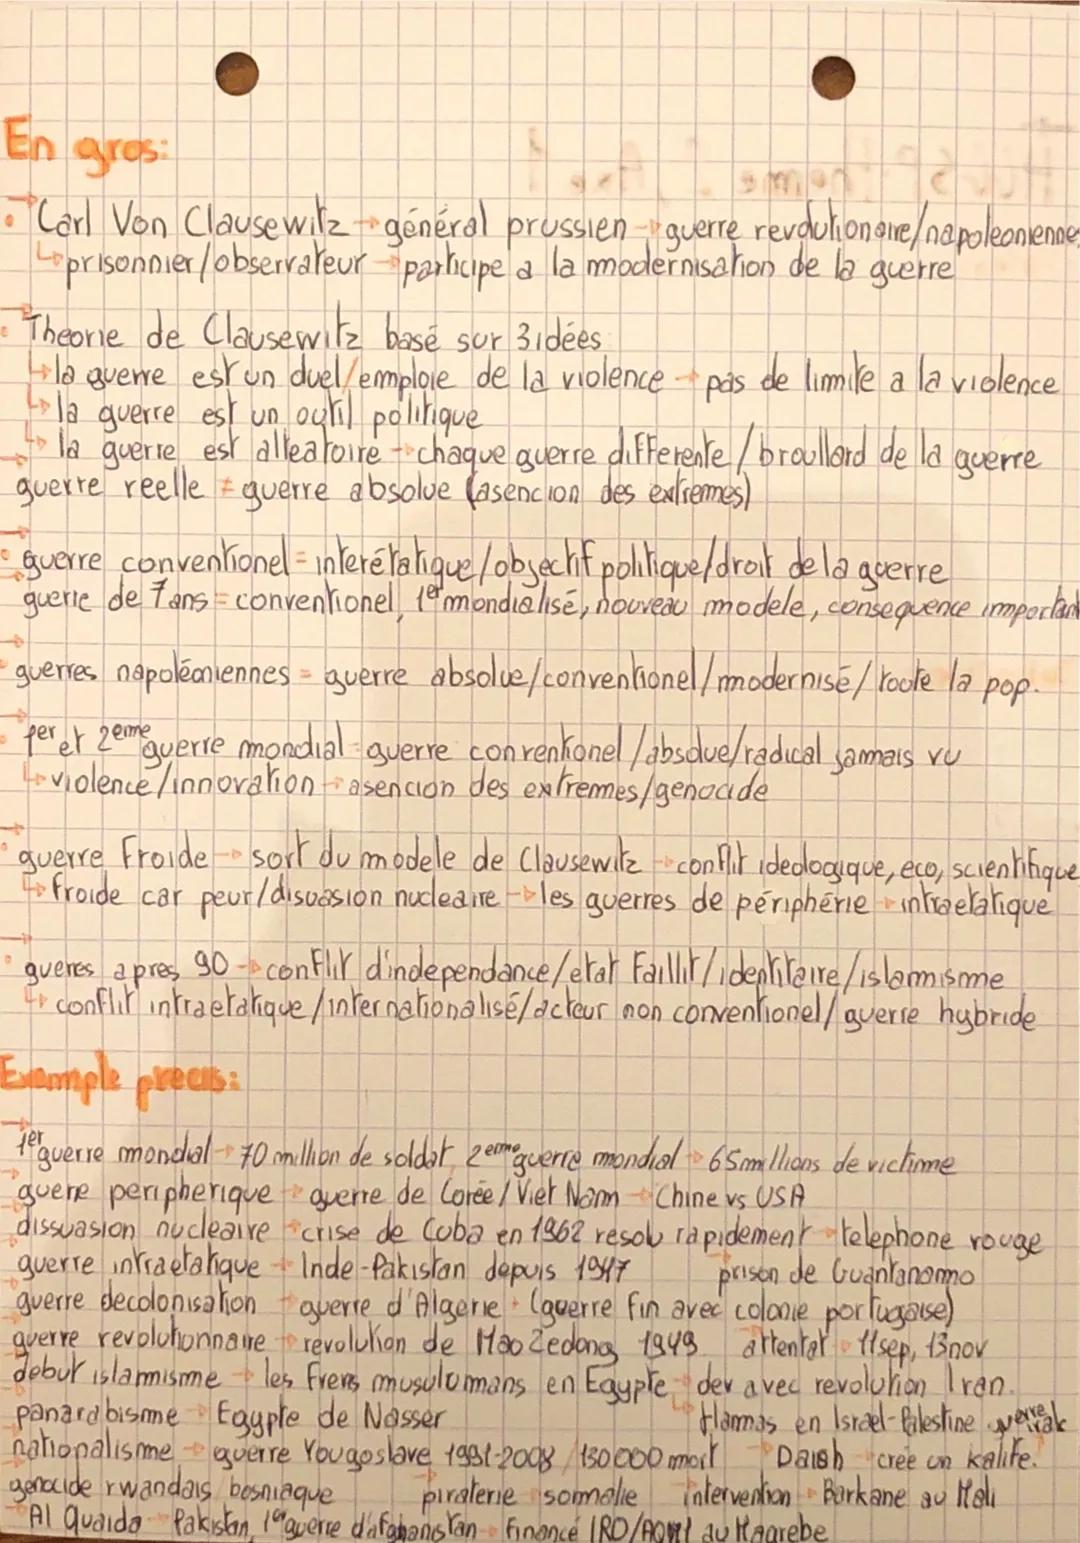 En gros:
• Carl Von Clausewitz → général prussien → guerre revolutionaire/napoleonienne
↳ prisonnier/observateur → participe a la modernisation de la guerre
• Theorie de Clausewitz basé sur 3 idées
↳ la guerre est un duel/emploie de la violence → pas de limmite a la violence
↳ la guerre est un outil politique
↳ la guerre est alleatoire → chaque guerre differente/broullard de la guerre
guerre reelle ≠ guerre absolue (asencion des extremes)
• guerre conventionel = interétatique/objectif politique/droit de la guerre
guerre de 7 ans = conventionel, 1er mondialisé, nouveau modele, consequence important
• guerres napoléoniennes = guerre absolue/conventionel/modernisé/toute la pop.
• 1er et 2eme guerre mondial = guerre conventionel/absolue/radical jamais vu
↳ violence/innovation → asencion des extremes/genocide
• guerre Froide → sort du modele de Clausewitz → conflit ideologique, eco, scientifique
↳ froide car peur/disuasion nucleaire → les guerres de périphérie → intraetatique
• gueres apres 90 → conflit d'independance/etat Faillit/identitaire/islamisme
↳ conflit intraetatique/internationalisé/acteur non conventionel/guerre hybride
Example precis:
1er guerre mondial → 70 million de soldat, 2eme guerre mondial → 65 millions de victime
guere peripherique → guerre de Corée/Viet Nam → Chine vs USA
dissuasion nucleaire → crise de Cuba en 1962 resolu rapidement → telephone rouge
guerre intraetatique → Inde-Pakistan depuis 1947 prison de Guantanomo
guerre decolonisation → guerre d'Algerie + (guerre fin avec colonie portugaise)
guerre revolutionnaire → revolution de Mao Zedong 1949 attentat → 11sep, 13nov
debut islamisme → les Frers musulumans en Egypte, dev avec revolution Iran.
panarabisme → Egypte de Nasser ↳ Hammas en Israel-Palestine guerre irak
nationalisme → guerre Yougoslave 1991-2008 / 130000 mort Daish crée un kalife.
genocide rwandais bosniaque piraterie somalie intervention → Barkane au Mali
Al Quaida → Pakistan, 1er guerre d'afghanistan → Financé IRO/AQMI au Magrebe